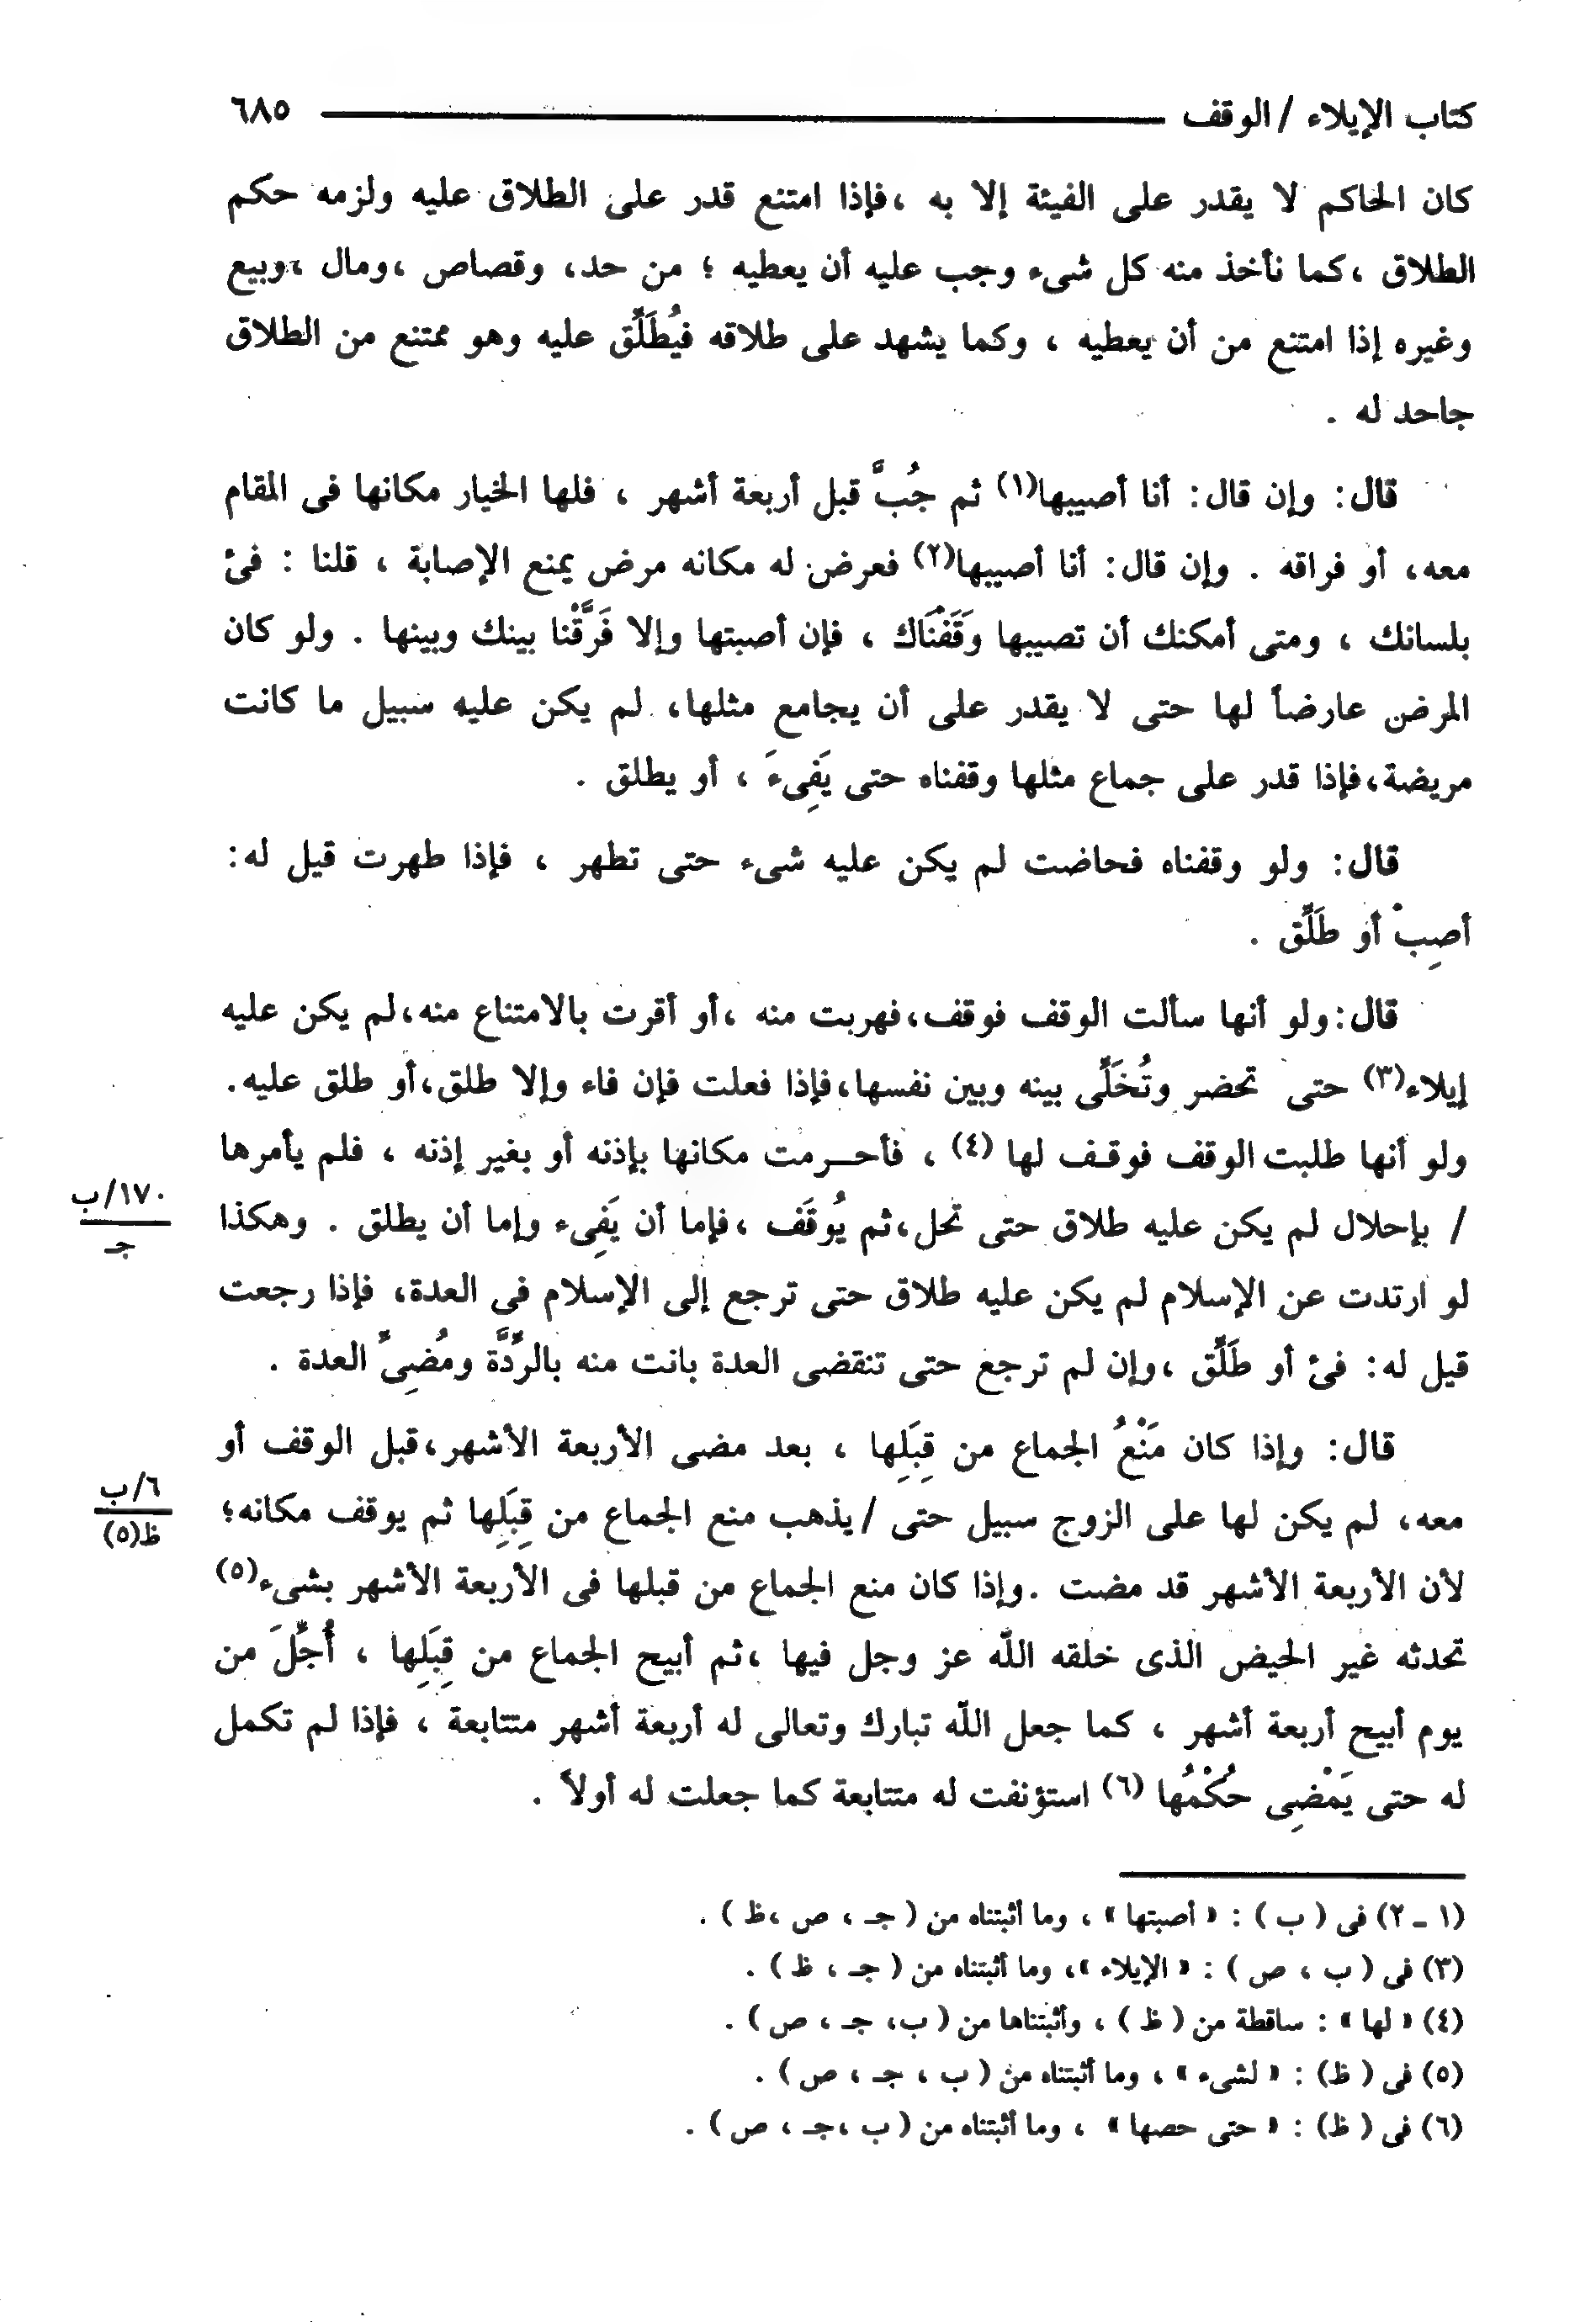 كتاب الإيلاء / الوقف ٦٨٥
كان الحاكم لا يقدر على الفيئة إلا به ،فإذا امتنع قدر على الطلاق عليه ولزمه حكم
الطلاق ،كما نأخذ منه كل شىء وجب عليه أن يعطيه ؛ من حد، وقصاص ،ومال ،وبيع
وغيره إذا امتنع من أن يعطيه ، وكما يشهد على طلاقه فيُطَلِّق عليه وهو ممتنع من الطلاق
جاحد له .
قال: وإن قال: أنا أصيبها(١) ثم جُبَّ قبل أربعة أشهر ، فلها الخيار مكانها فى المقام
معه، أو فراقه . وإن قال: أنا أصيبها(٢) فعرض له مكانه مرض يمنع الإصابة ، قلنا : فئ
بلسانك ، ومتى أمكنك أن تصيبها وَقَفْنَاك ، فإن أصبتها وإلا فَرَّقْنا بينك وبينها . ولو كان
المرض عارضاً لها حتى لا يقدر على أن يجامع مثلها، لم يكن عليه سبيل ما كانت
مريضة،فإذا قدر على جماع مثلها وقفناه حتى يَفِىءَ ، أو يطلق .
قال: ولو وقفناه فحاضت لم يكن عليه شىء حتى تطهر ، فإذا طهرت قيل له:
أصِبْ أو طَلِّق .
قال:ولو أنها سألت الوقف فوقف،فهربت منه ،أو أقرت بالامتناع منه،لم يكن عليه
إيلاء(٣) حتى تحضر وتُخَلِّى بينه وبين نفسها،فإذا فعلت فإن فاء وإلا طلق،أو طلق عليه.
ولو أنها طلبت الوقف فوقف لها (٤) ، فأحـرمت مكانها بإذنه أو بغير إذنه ، فلم يأمرها
/ بإحلال لم يكن عليه طلاق حتى تحل،ثم يُوقَف ،فإما أن يَفِىء وإما أن يطلق . وهكذا
١٧٠/ب
جـ
لو ارتدت عن الإسلام لم يكن عليه طلاق حتى ترجع إلى الإسلام فى العدة، فإذا رجعت
قيل له: فئ أو طَلِّق ،وإن لم ترجع حتى تنقضى العدة بانت منه بالرِّدَّة ومُضِىِّ العدة .
قال: وإذا كان مَنْعُ الجماع من قِبَلِها ، بعد مضى الأربعة الأشهر،قبل الوقف أو
معه، لم يكن لها على الزوج سبيل حتى /يذهب منع الجماع من قِبَلِها ثم يوقف مكانه؛
٦/ب
ظ(٥)
لأن الأربعة الأشهر قد مضت .وإذا كان منع الجماع من قبلها فى الأربعة الأشهر بشىء(٥)
تحدثه غير الحيض الذى خلقه الله عز وجل فيها ،ثم أبيح الجماع من قِبَلِها ، أُجِّلَ من
يوم أبيح أربعة أشهر ، كما جعل الله تبارك وتعالى له أربعة أشهر متتابعة ، فإذا لم تكمل
له حتى يَمْضِى حُكْمُها (٦) استؤنفت له متتابعة كما جعلت له أولاً .
(١ ـ ٢) فى ( ب ) : « أصبتها » ، وما أثبتناه من ( جـ ، ص ،ظ ) .
(٣) فى ( ب ، ص ) : « الإيلاء »، وما أثبتناه من ( جـ ، ظ ) .
(٤) « لها » : ساقطة من ( ظ ) ، وأثبتناها من ( ب، جـ ، ص ) .
(٥) فى ( ظ) : « لشىء » ، وما أثبتناه من ( ب ، جـ ، ص ) .
(٦) فى ( ظ) : « حتى حصها » ، وما أثبتناه من ( ب ،جـ ، ص ) .